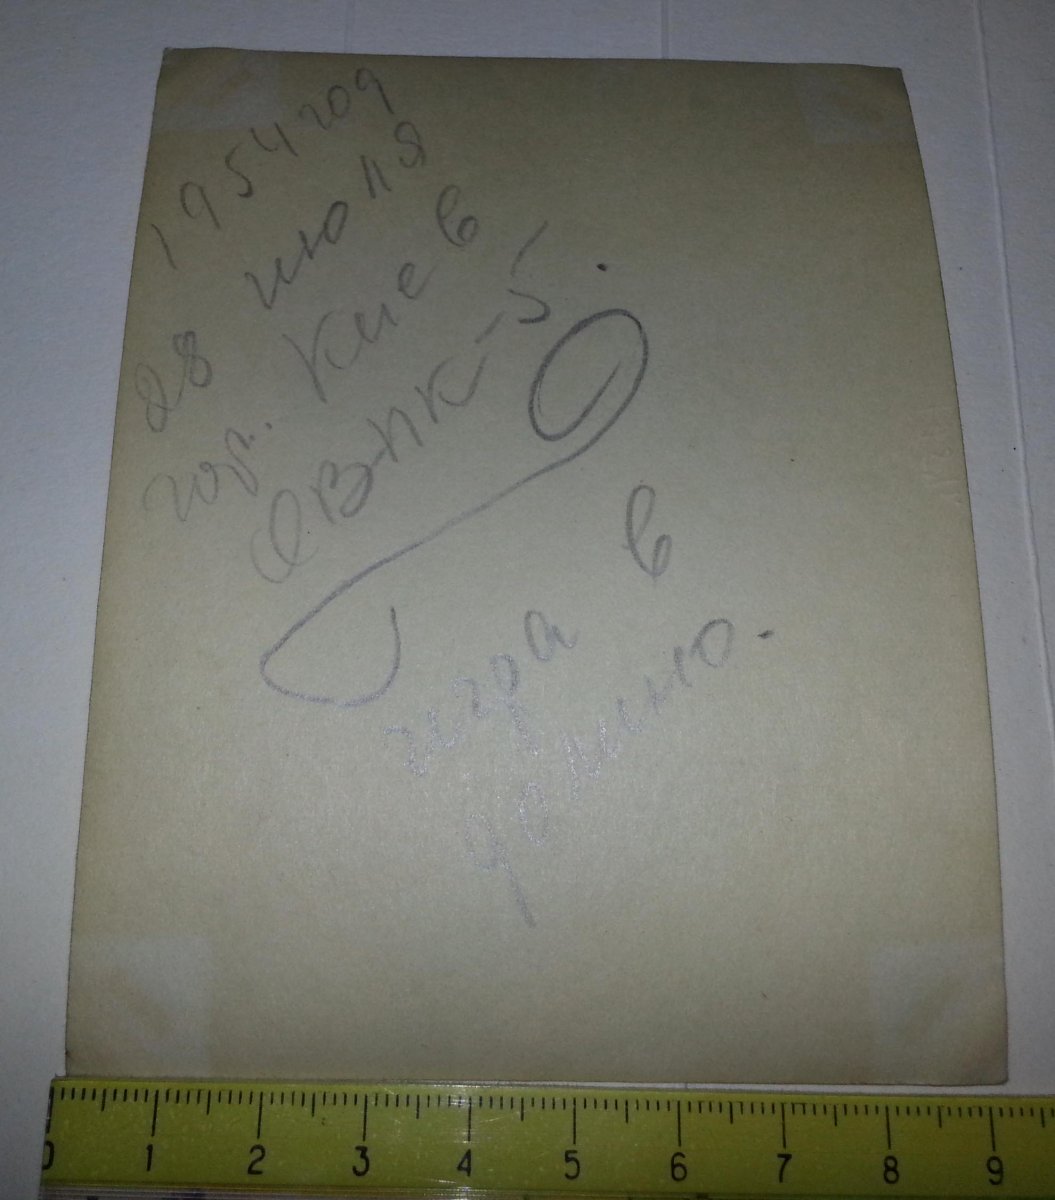 1954 год
28 июля
гор. Киев
ОВ-ПК-5.
игра в
домино.
0 1 2 3 4 5 6 7 8 9